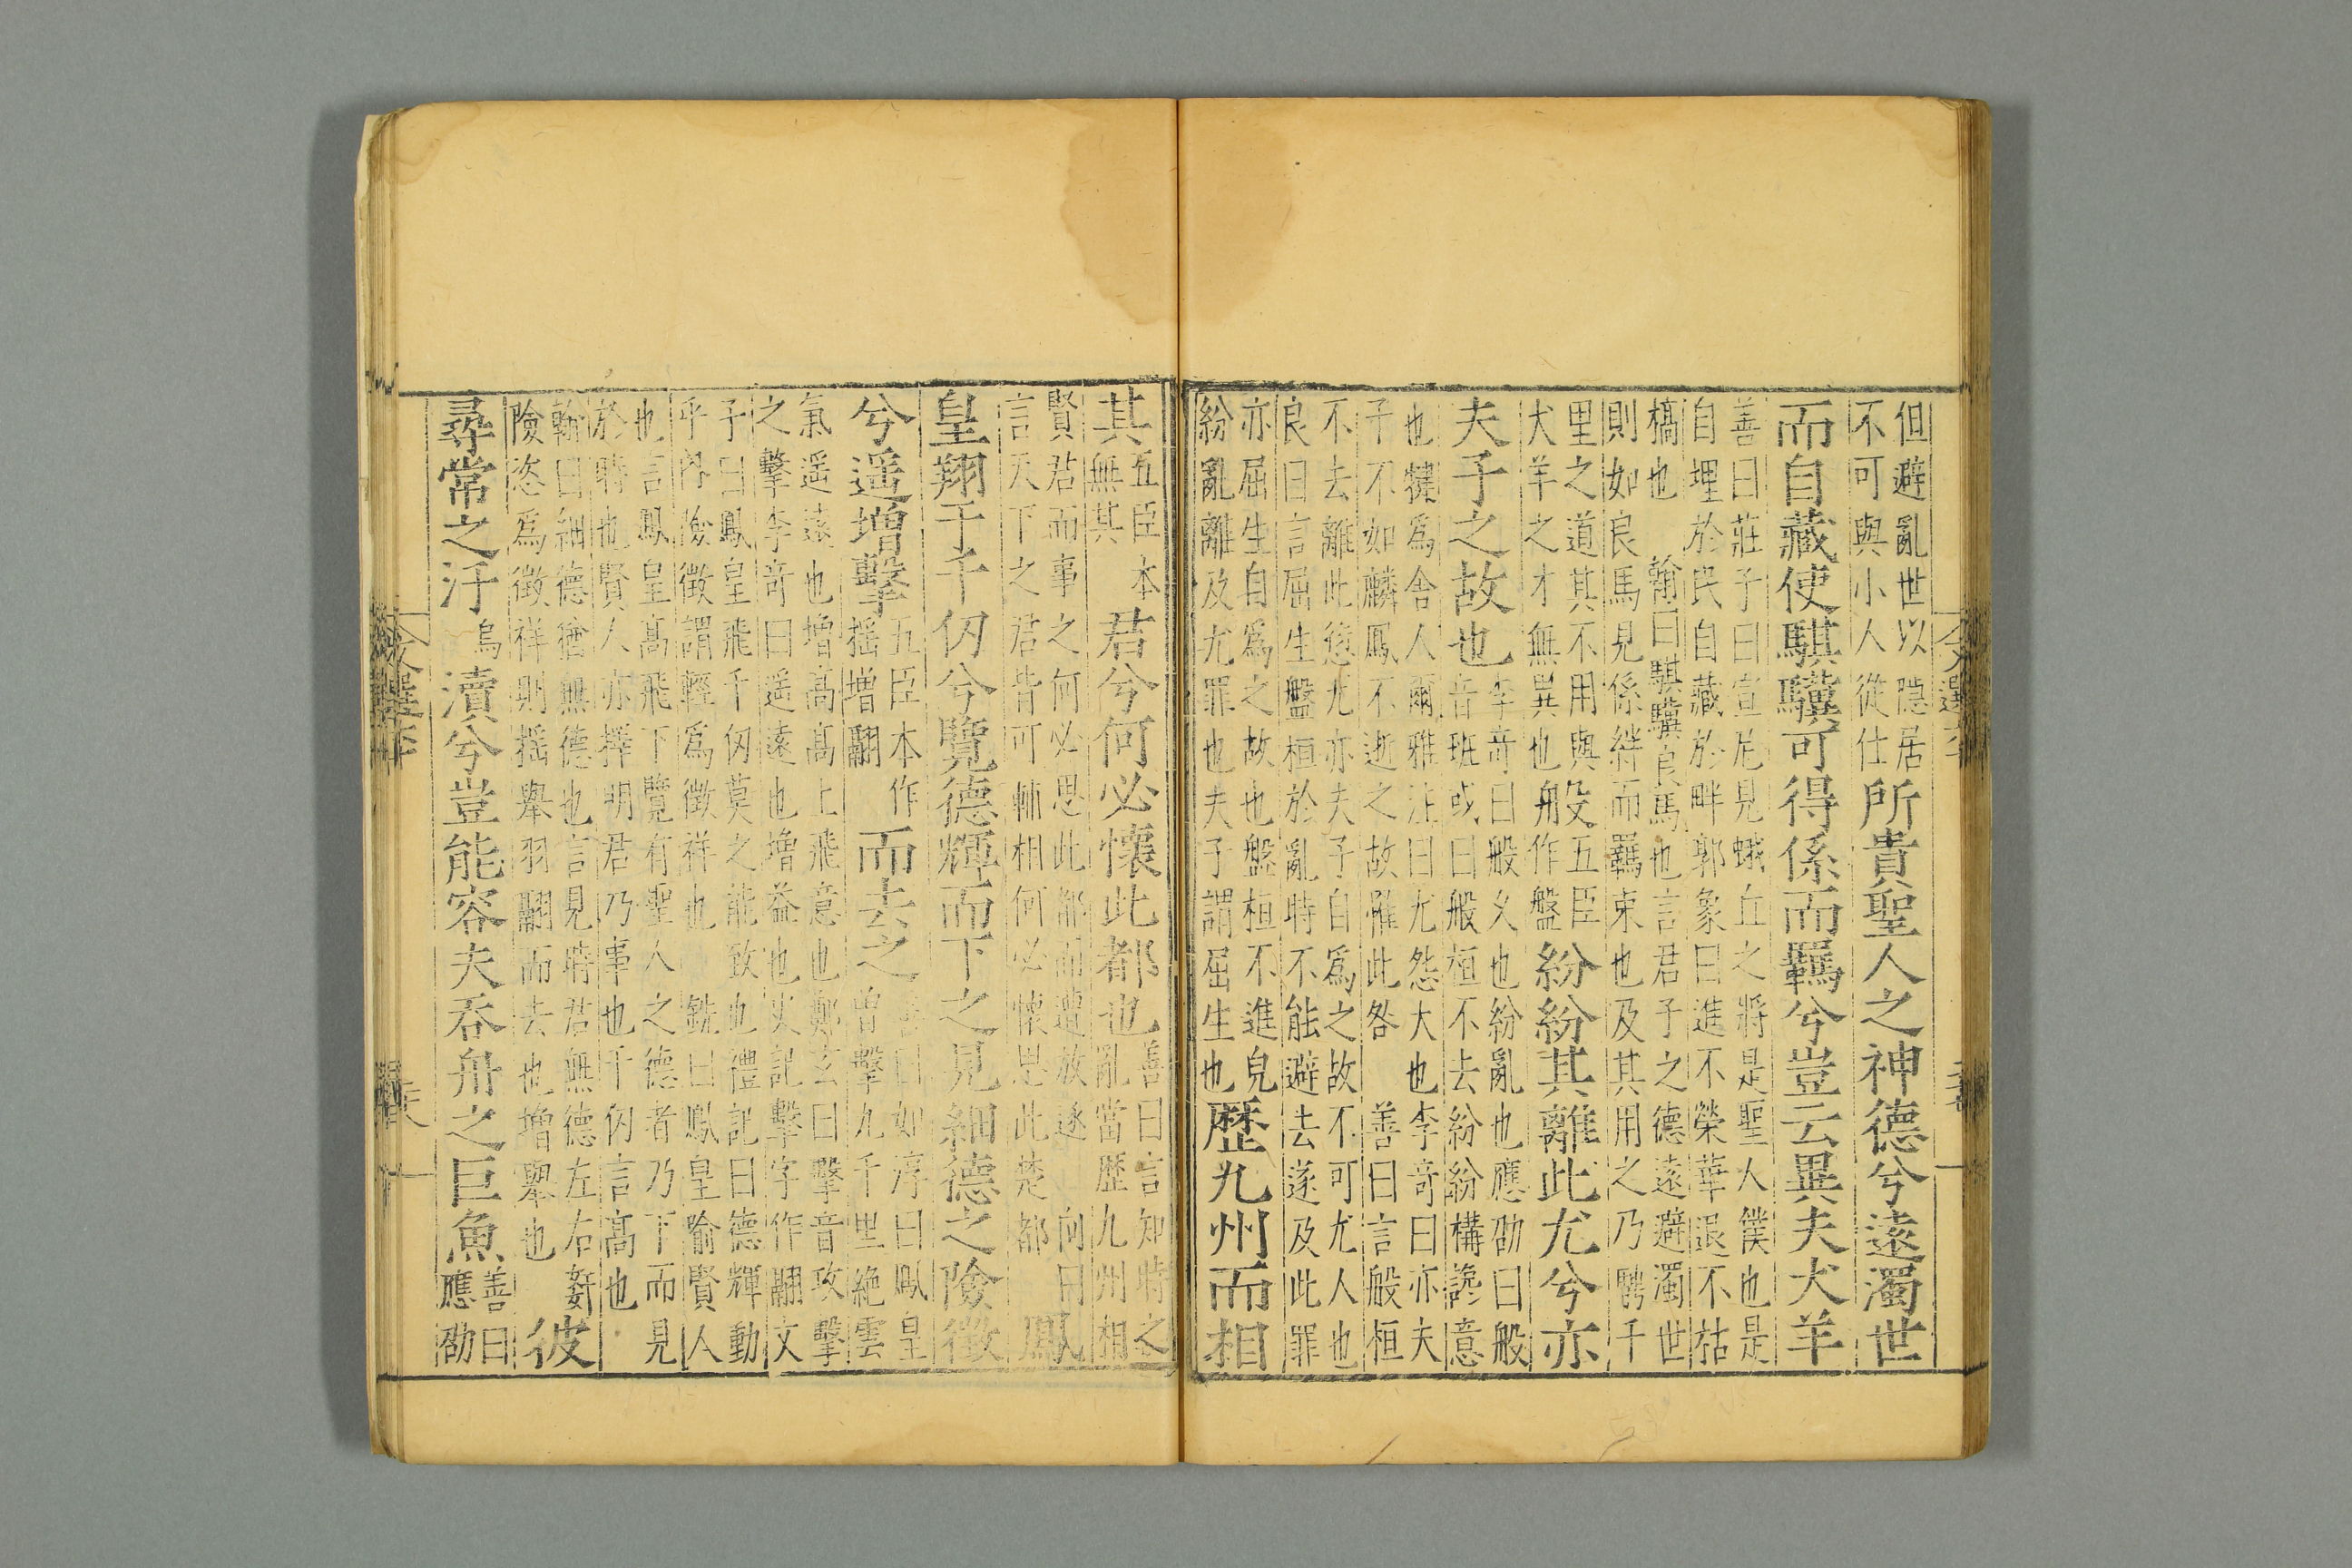 但避亂世以隱居
不可與小人從仕
所貴聖人之神德兮遠濁世
而自藏使騏驥可得係而羈兮豈云異夫犬羊
善曰莊子曰宣尼見蛾丘之將是聖人僕也是
自埋於民自藏於畔郭象曰進不榮華退不枯
槁也 翰曰騏驥良馬也言君子之德遠避濁世
則如良馬見係絆而羈束也及其用之乃騁千
里之道其不用與
犬羊之才無異也
般五臣
作盤
紛紛其離此尤兮亦
夫子之故也
李奇曰般久也紛亂也應劭曰般
音班或曰般桓不去紛紛構讒意
也犍爲舍人爾雅注曰尤怨大也李奇曰亦夫
子不如麟鳳不逝之故惟此咎 善曰言般桓
不去離此愆尤亦夫子自爲之故不可尤人也
良曰言屈生盤桓於亂時不能避去遂及此罪
亦屈生自爲之故也盤桓不進皃
紛亂離及尤罪也夫子謂屈生也
歷九州而相
其
五臣本
無其
君兮何必懷此都也
善曰言知時之
亂當歷九州相
賢君而事之何必思此都而遭放逐 向曰
言天下之君皆可輔相何必懷思此楚都
鳳
皇翔于千仞兮覽德輝而下之見細德之險徵
兮遥增擊
五臣本作
摇增翮
而去之
如淳曰鳳皇
曾擊九千里絶雲
氣遥遠也增高高上飛意也鄭玄曰擊音攻擊
之擊李奇曰遥遠也增益也史記擊字作翮文
子曰鳳皇飛千仞莫之能致也禮記曰德輝動
乎外險徵謂輕爲徵祥也 銑曰鳳皇喻賢人
也言鳳皇高飛下覽有聖人之德者乃下而見
於時也賢人亦擇明君乃事也千仞言高也
翰曰細德猶無德也言見時君無德左右姧
險恣爲徵祥則摇舉羽翮而去也增舉也
彼
尋常之汙
烏
瀆兮豈能容夫吞舟之巨魚
善曰
應劭